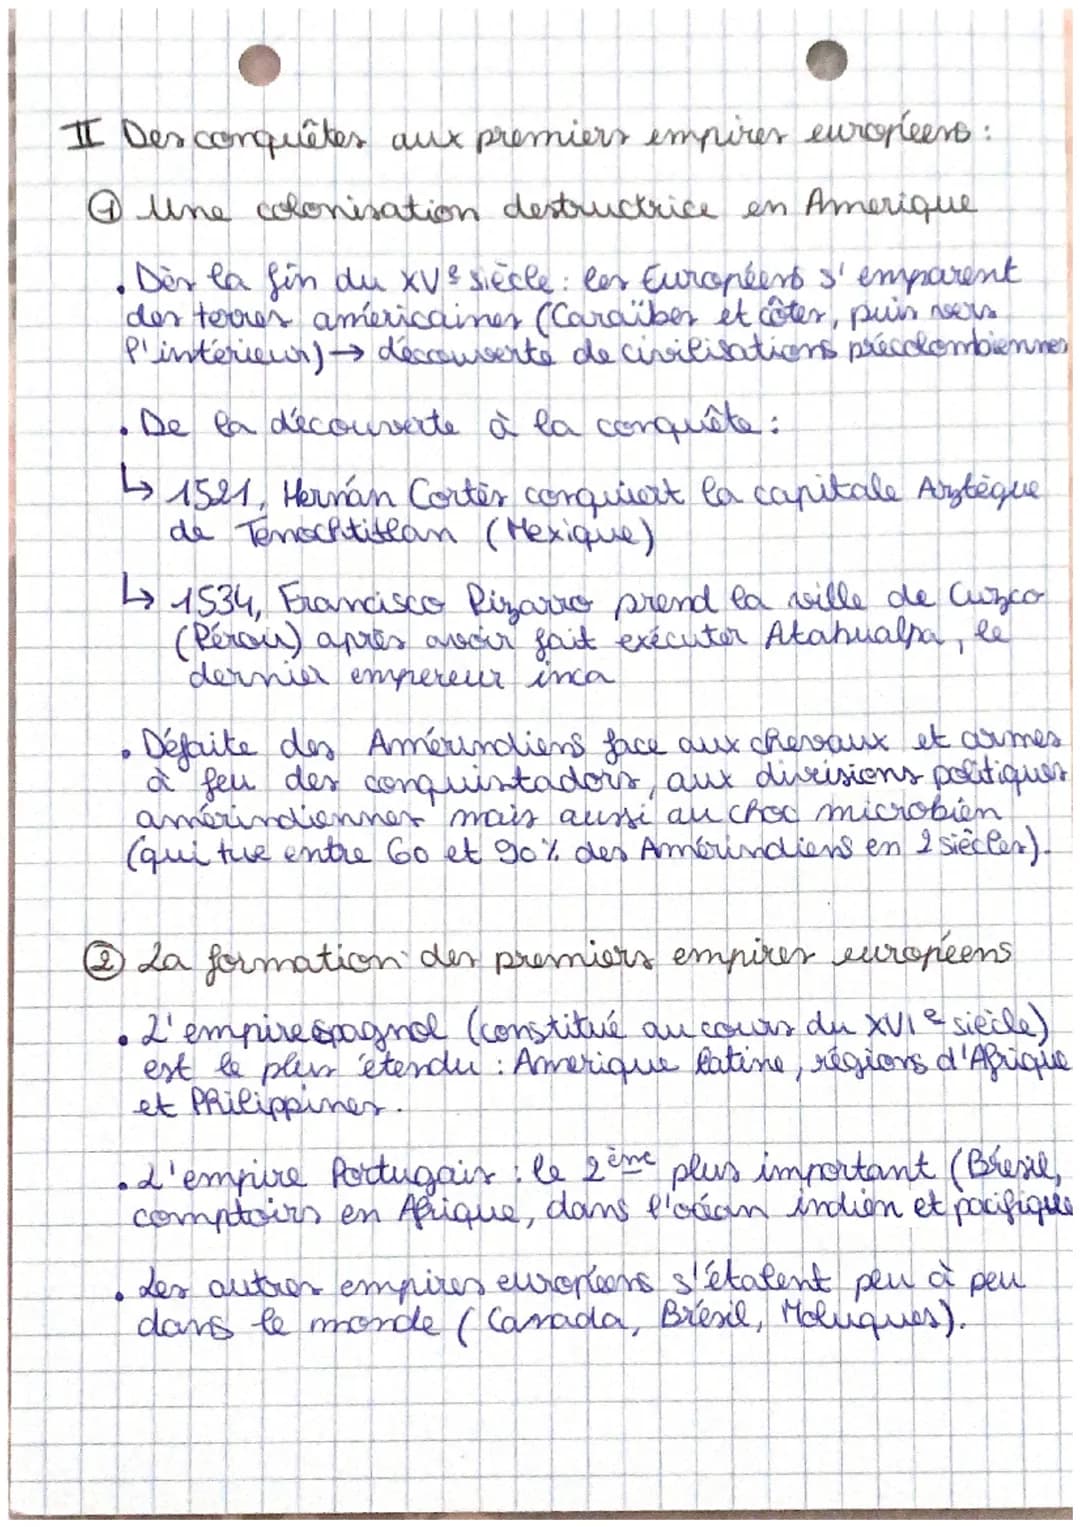 II Des conquêtes aux premiers empires européens :
① Une colonisation destructrice en Amerique
. Dès la fin du XVe siècle : les Européens s'emparent
des terres américaines (Caraïbes et côtes, puis vers
l'intérieur) → découverte de civilisations précolombiennes
. De la découverte à la conquête :
↳ 1521, Hernán Cortés conquiert la capitale Aztèque
de Tenochtitlan (Mexique)
↳ 1534, Francisco Pizarro prend la ville de Cuzco
(Pérou) après avoir fait exécuter Atahualpa, le
dernier empereur inca
. Défaite des Amérindiens face aux chevaux et armes
à feu des conquistadors, aux divisions politiques
amérindiennes mais aussi au choc microbien
(qui tue entre 60 et 90% des Amérindiens en 2 siècles).
② La formation des premiers empires européens
. L'empire espagnol (constitué au cours du XVIe siècle)
est le plus étendu : Amerique latine, régions d'Afrique
et Philippines.
. L'empire Portugais : le 2ème plus important (Brésil,
comptoirs en Afrique, dans l'océan indien et pacifique
. Les autres empires européens s'étalent peu à peu
dans le monde (Canada, Brésil, Moluques).